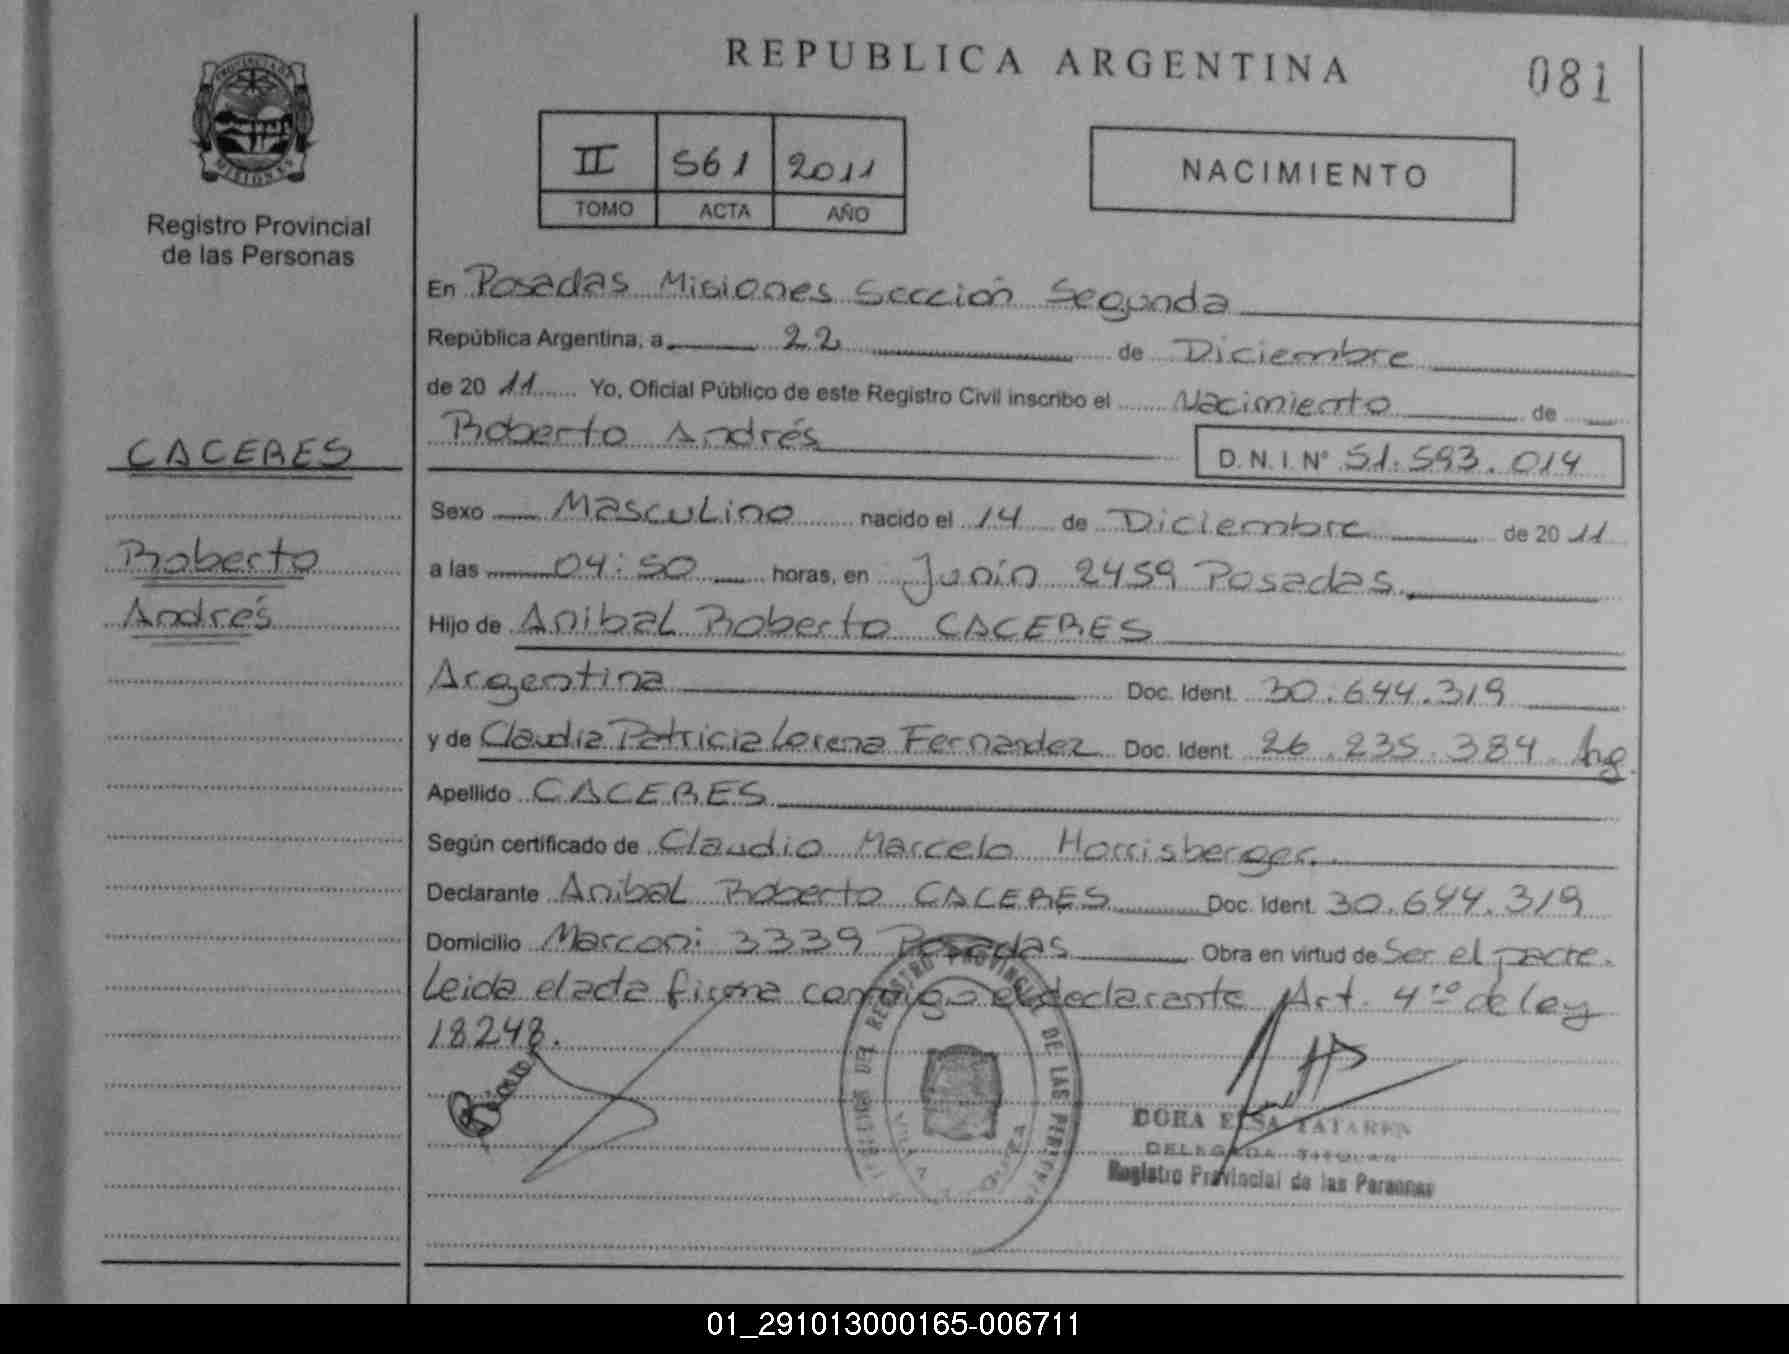 REPUBLICA ARGENTINA
081
PROVINCIA DE
MISIONES
Registro Provincial
de las Personas
II 561 2011
TOMO ACTA AÑO
NACIMIENTO
En Posadas Misiones Sección Segunda
República Argentina, a 22 de Diciembre
de 20 11 Yo, Oficial Público de este Registro Civil inscribo el Nacimiento de
Roberto Andrés
D. N. I. N° 51.593.014
CACERES
Roberto
Andrés
Sexo Masculino nacido el 14 de Diciembre de 20 11
a las 04:50 horas, en Junín 2459 Posadas
Hijo de Anibal Roberto CACERES
Argentina Doc. Ident. 30.644.319
y de Claudia Patricia Lorena Fernandez Doc. Ident. 26.235.384 Arg.
Apellido CACERES
Según certificado de Claudio Marcelo Horrisberger
Declarante Anibal Roberto CACERES Doc. Ident. 30.644.319
Domicilio Marconi 3339 Posadas Obra en virtud de Ser el padre.
Leida el acta firma conmigo el declarante Art. 4to de ley
18248.
REGISTRO PROVINCIAL DE LAS PERSONAS
DORA ELSA TATAREN
DELEGADA TITULAR
Registro Provincial de las Personas
01_291013000165-006711